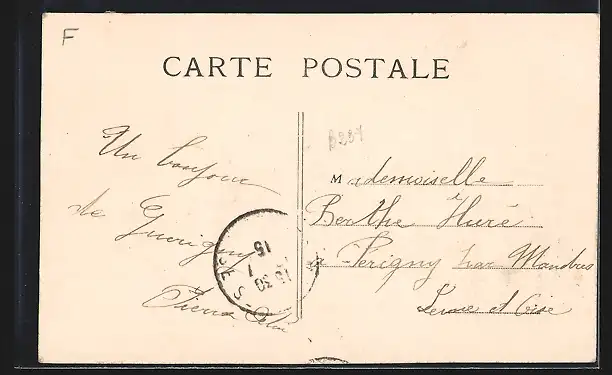 F
CARTE POSTALE
B281
Un bonjour
de Guérigny
Pierre
Mademoiselle
Berthe Huré
à Périgny par Mandres
Seine et Oise
15 30
15